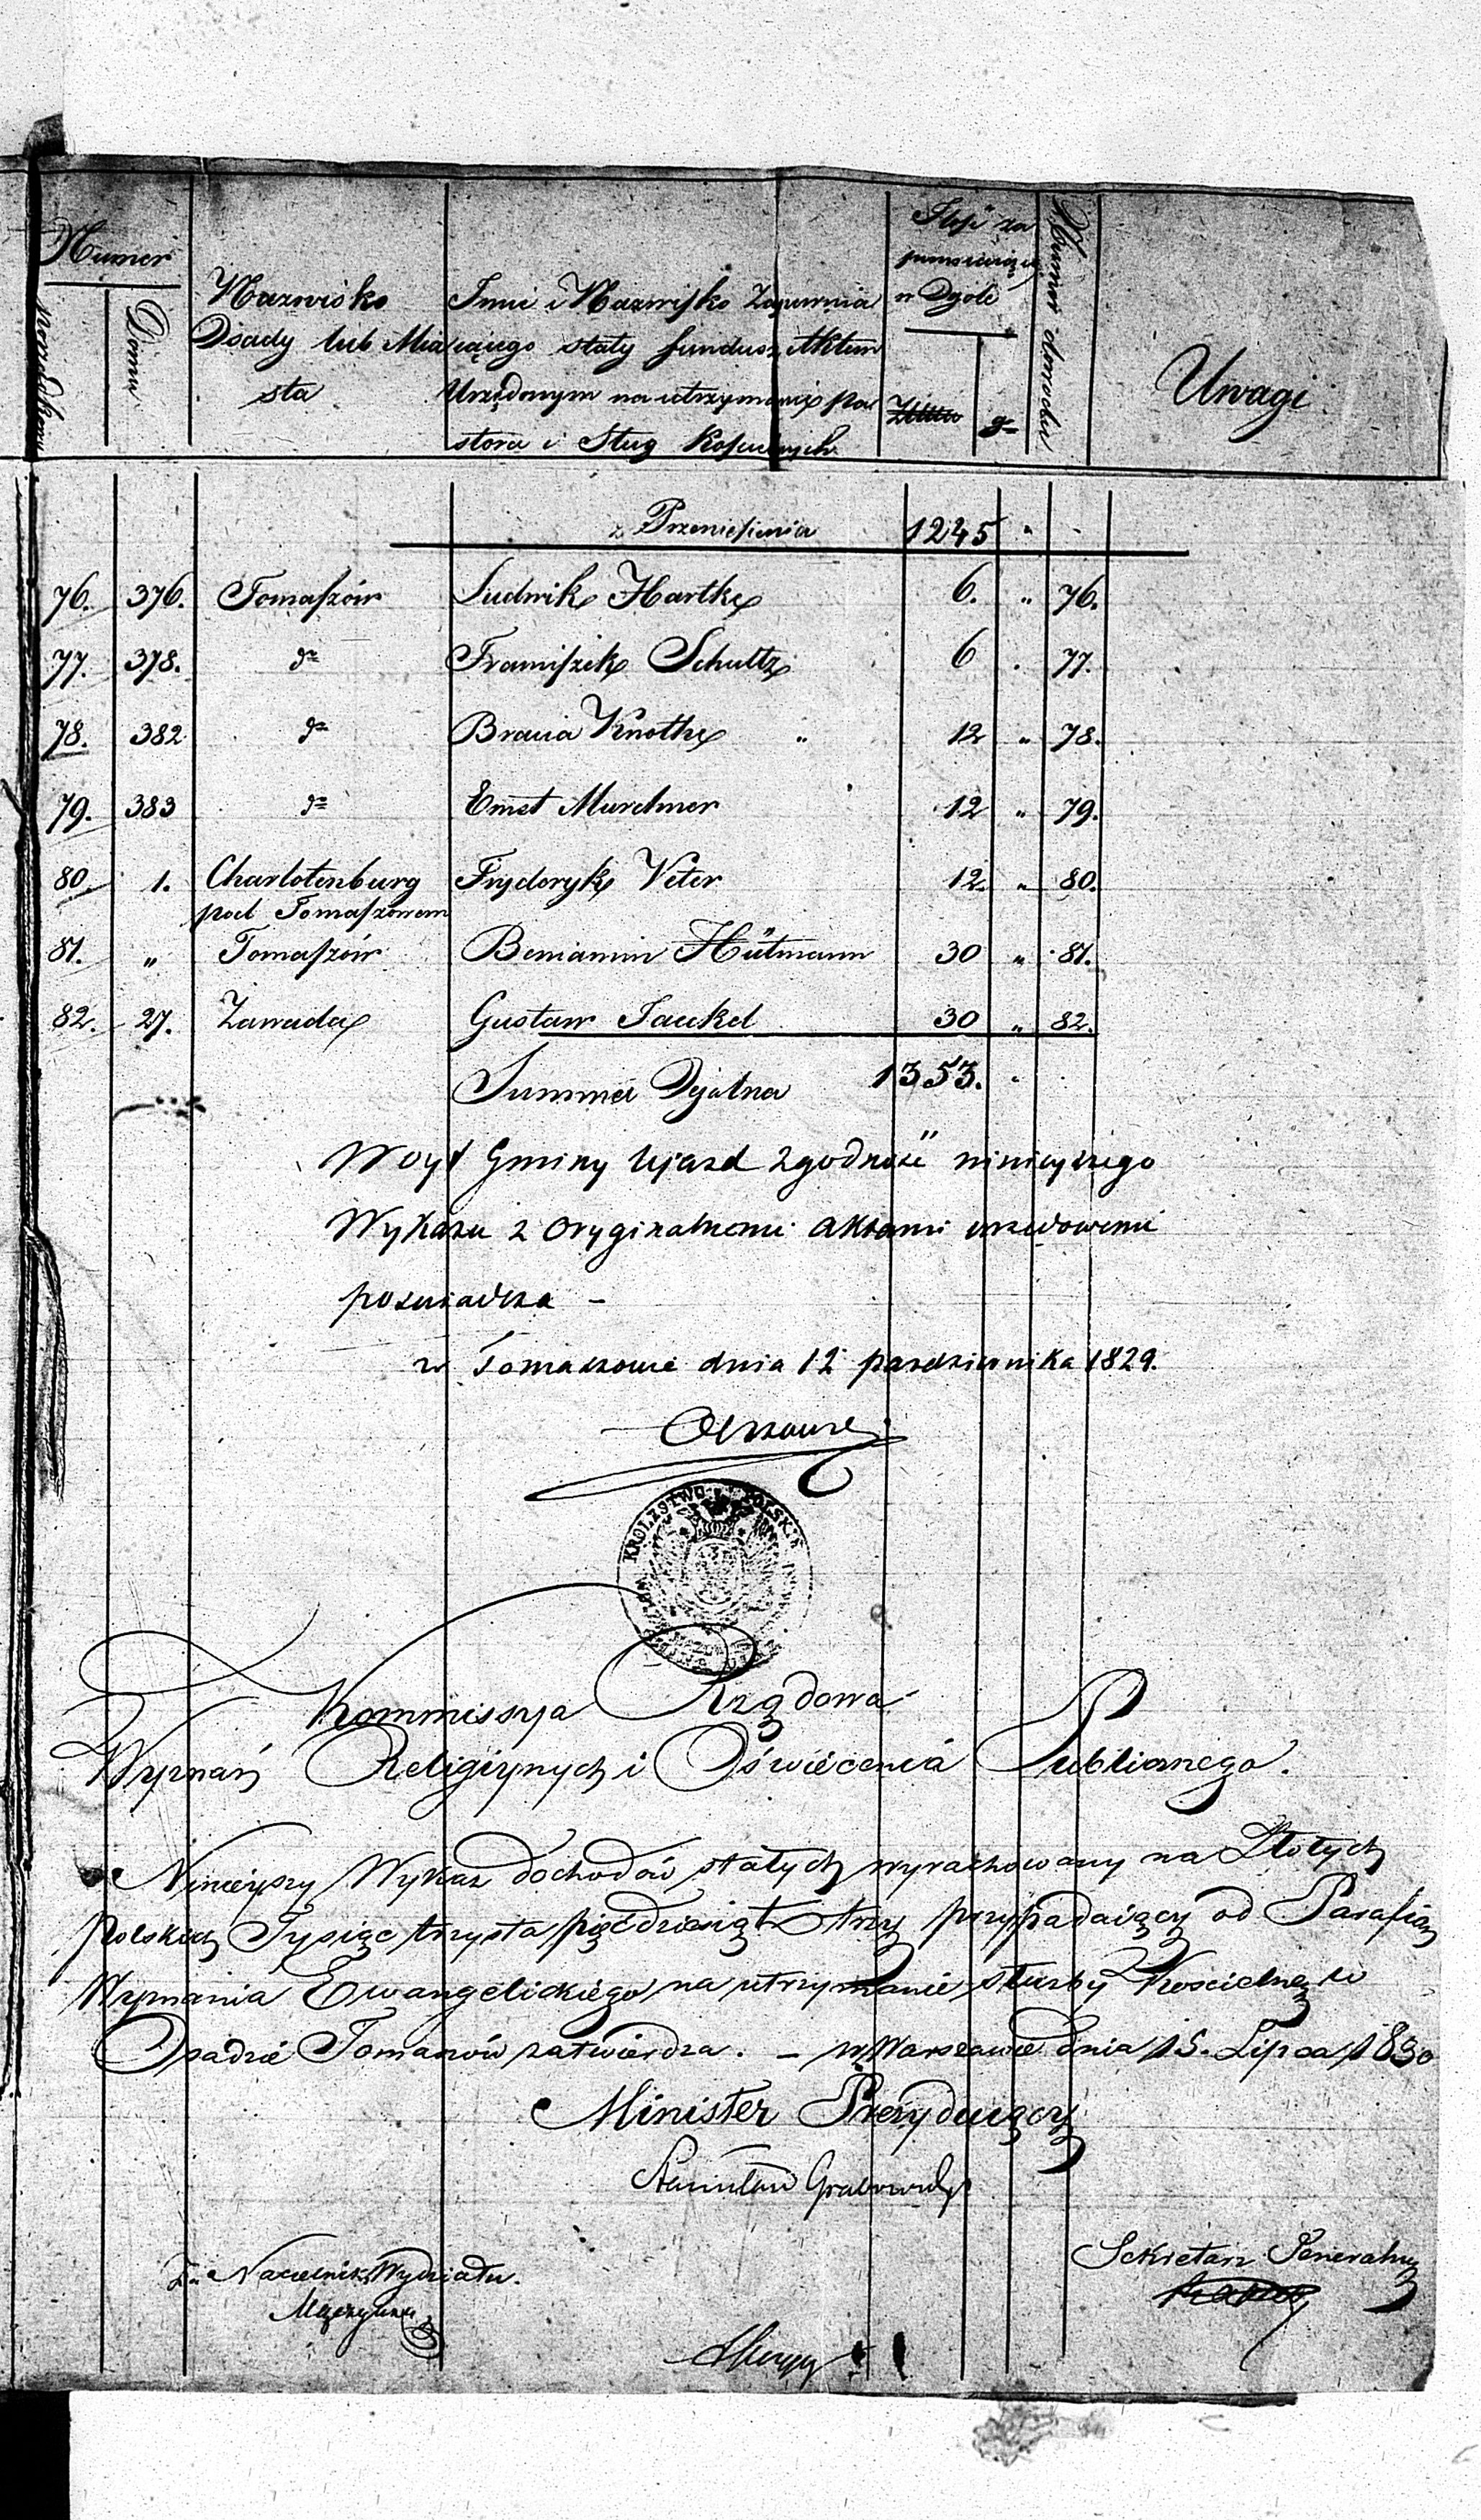 Numer
porządkowy
Domu
Nazwisko
Osady lub Mia
sta
Imie i Nazwisko Zapewnia
iącego stały fundusz Aktem
Urzędowym na utrzymanie pa
stora i Sług Kościelnych
Ilość za
w Ogóle
Złotto
gr
Numer dowodu
Uwagi
z Przeniesienia 1245 "
76. 376. Tomaszów Ludwik Hartke 6. " 76.
77. 378. do Franciszek Schultz 6 . 77.
78. 382 do Bracia Knothe " 12 " 78.
79. 383 do Ernst Murchner 12 " 79.
80. 1. Charlotenburg Frÿderyk Veter 12. " 80.
pod Tomaszowem
81. " Tomaszów Beniamin Hütmann 30 " 81.
82. 27. Zawada Gustaw Jaekel 30 " 82.
Summa Ogólna 1353. "
Woyt Gminy Ujazd zgodność ninieyszego
Wykazu z oryginalnemi aktami urzędowemi
poswiadcza –
w Tomaszowie dnia 12 pazdziernika 1829.
KROLESTWO POLSKIE
Kommissya Rządowa
Wyznań Religiynych i Oświecenia Publicznego.
Ninieyszy Wykaz dochodów stałych wyrachowany na Złotych
Polskich Tysiąc trzysta pięćdziesiąt trzy przypadaiący od Parafian
Wyznania Ewangelickiego na utrzymanie służby Kościelney w
Osadzie Tomaszów zatwierdza. – w Warszawie dnia 15. Lipca 1830
Minister Prezyduiący
Stanisław Grabowski
Naczelnik Wydziału.
Sekretarz Generalny